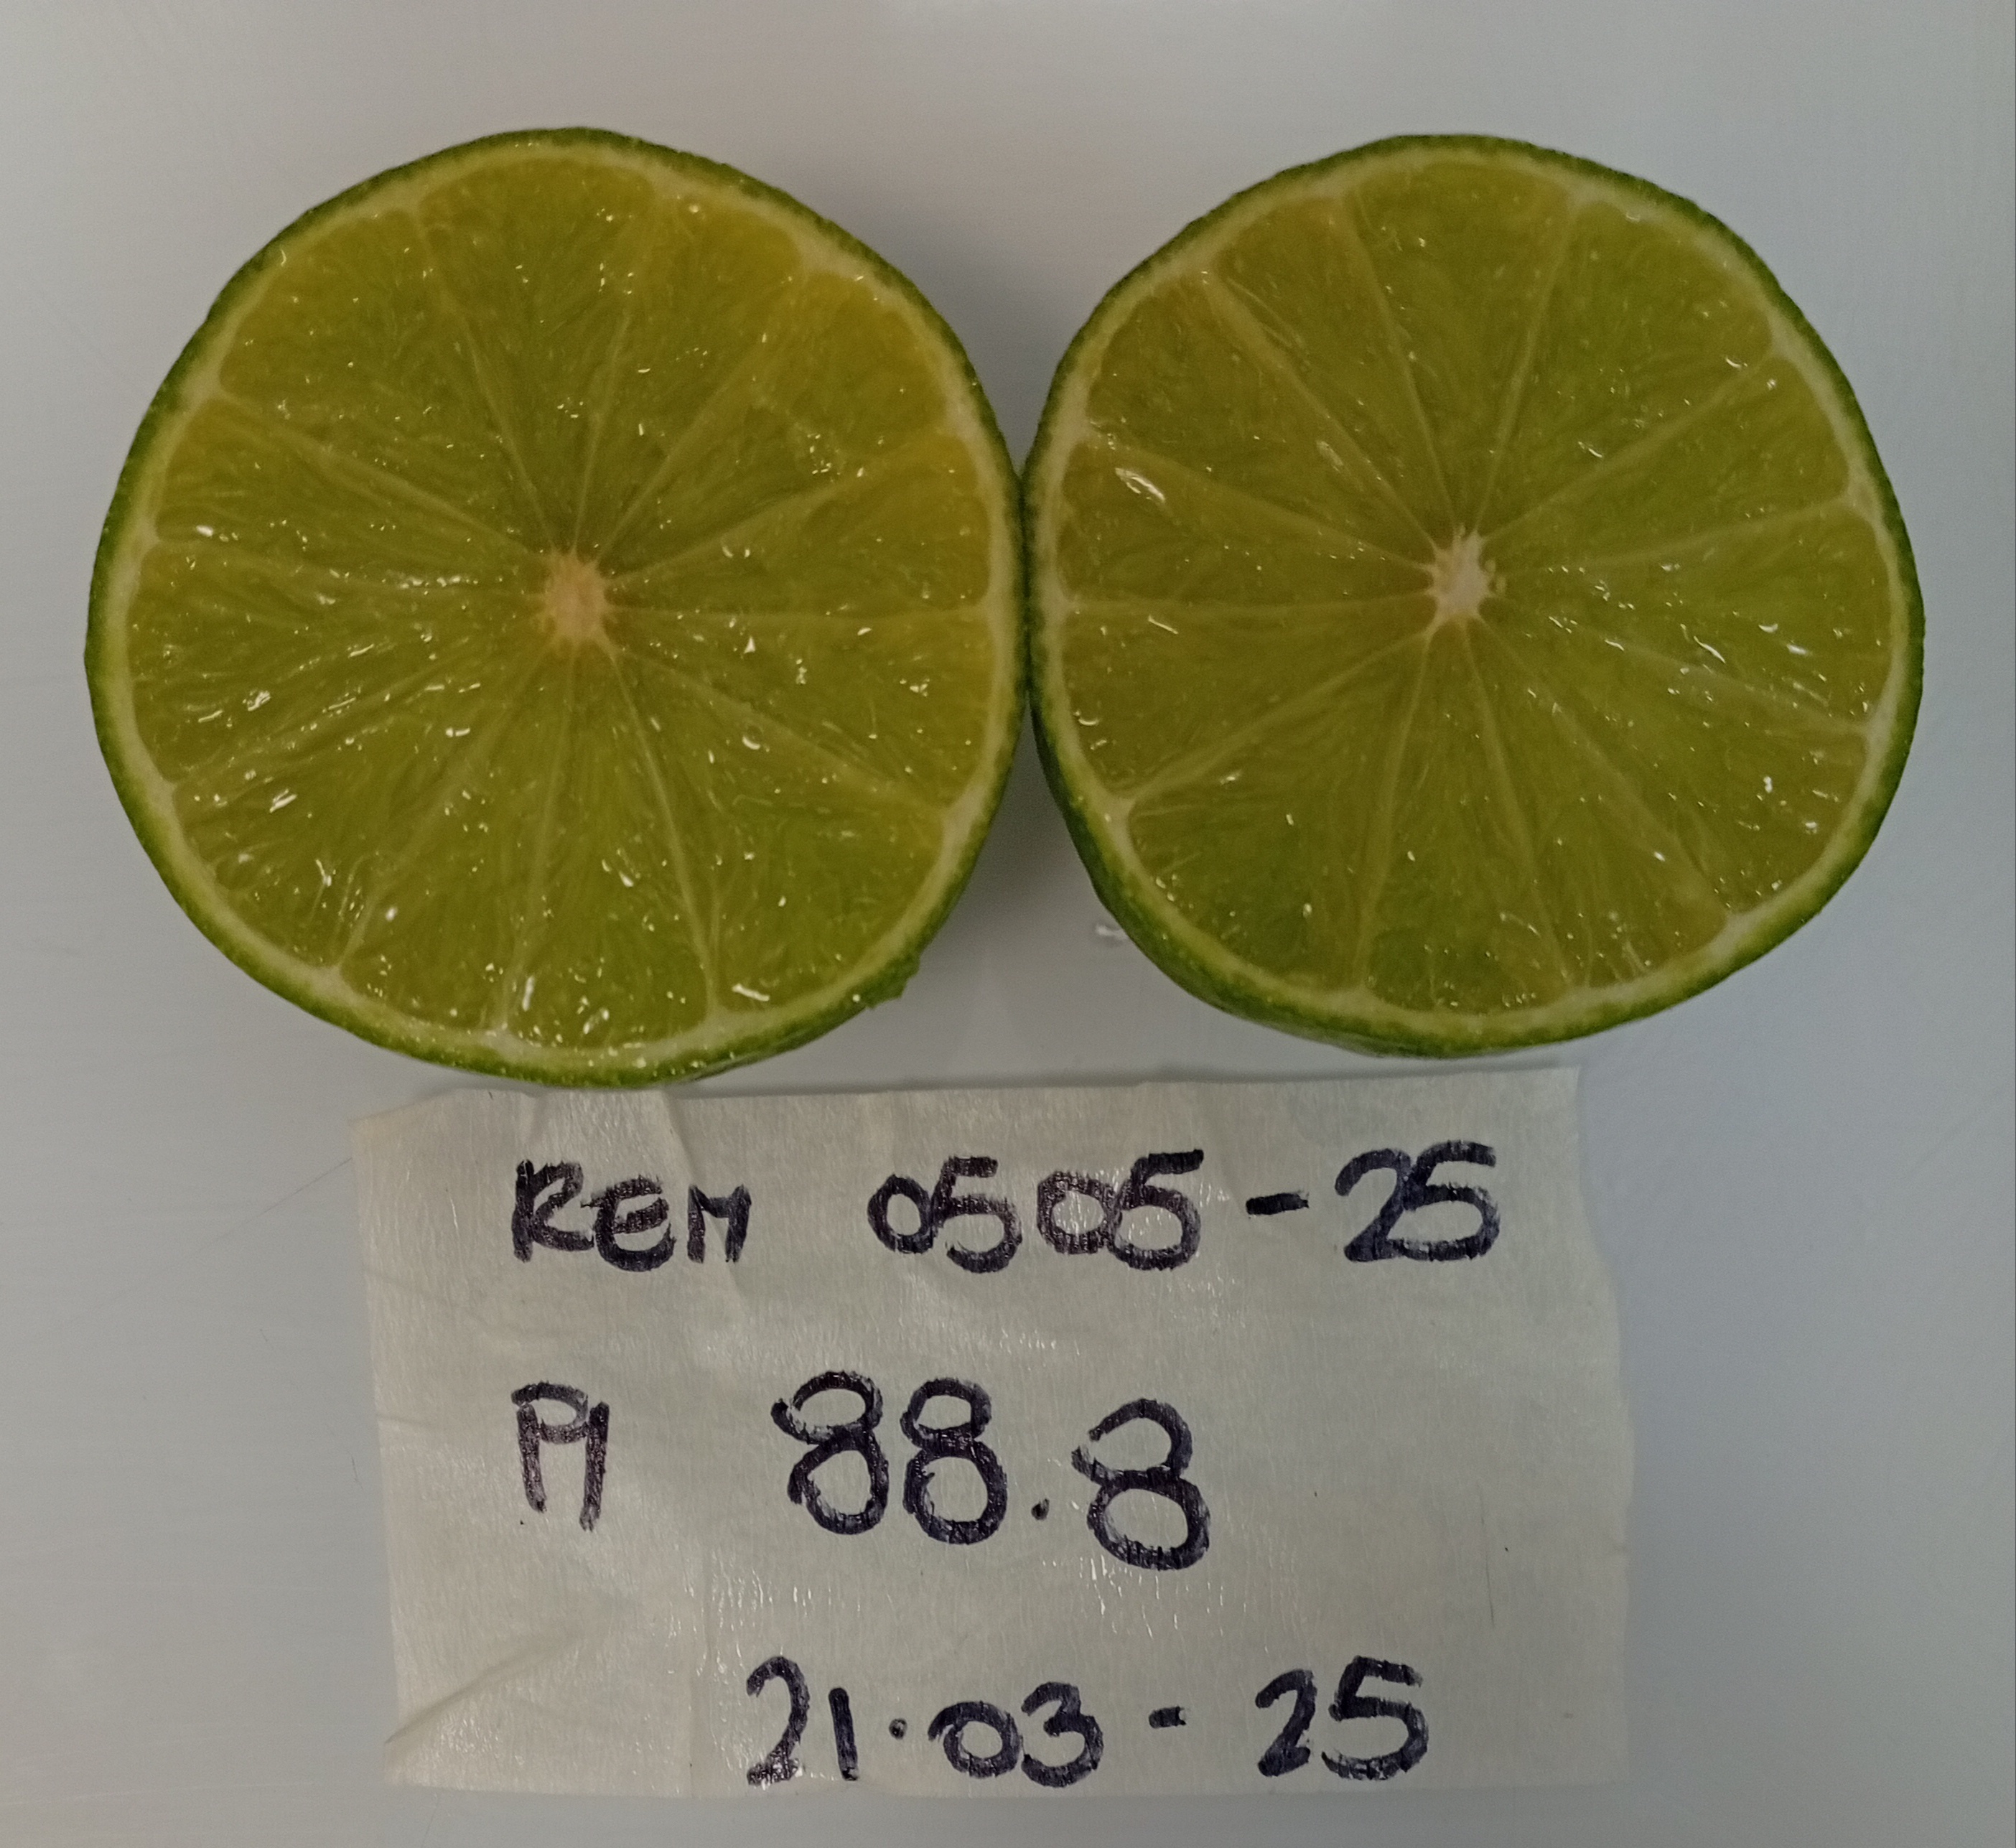 REM 0505-25
M 88.8
21.03-25